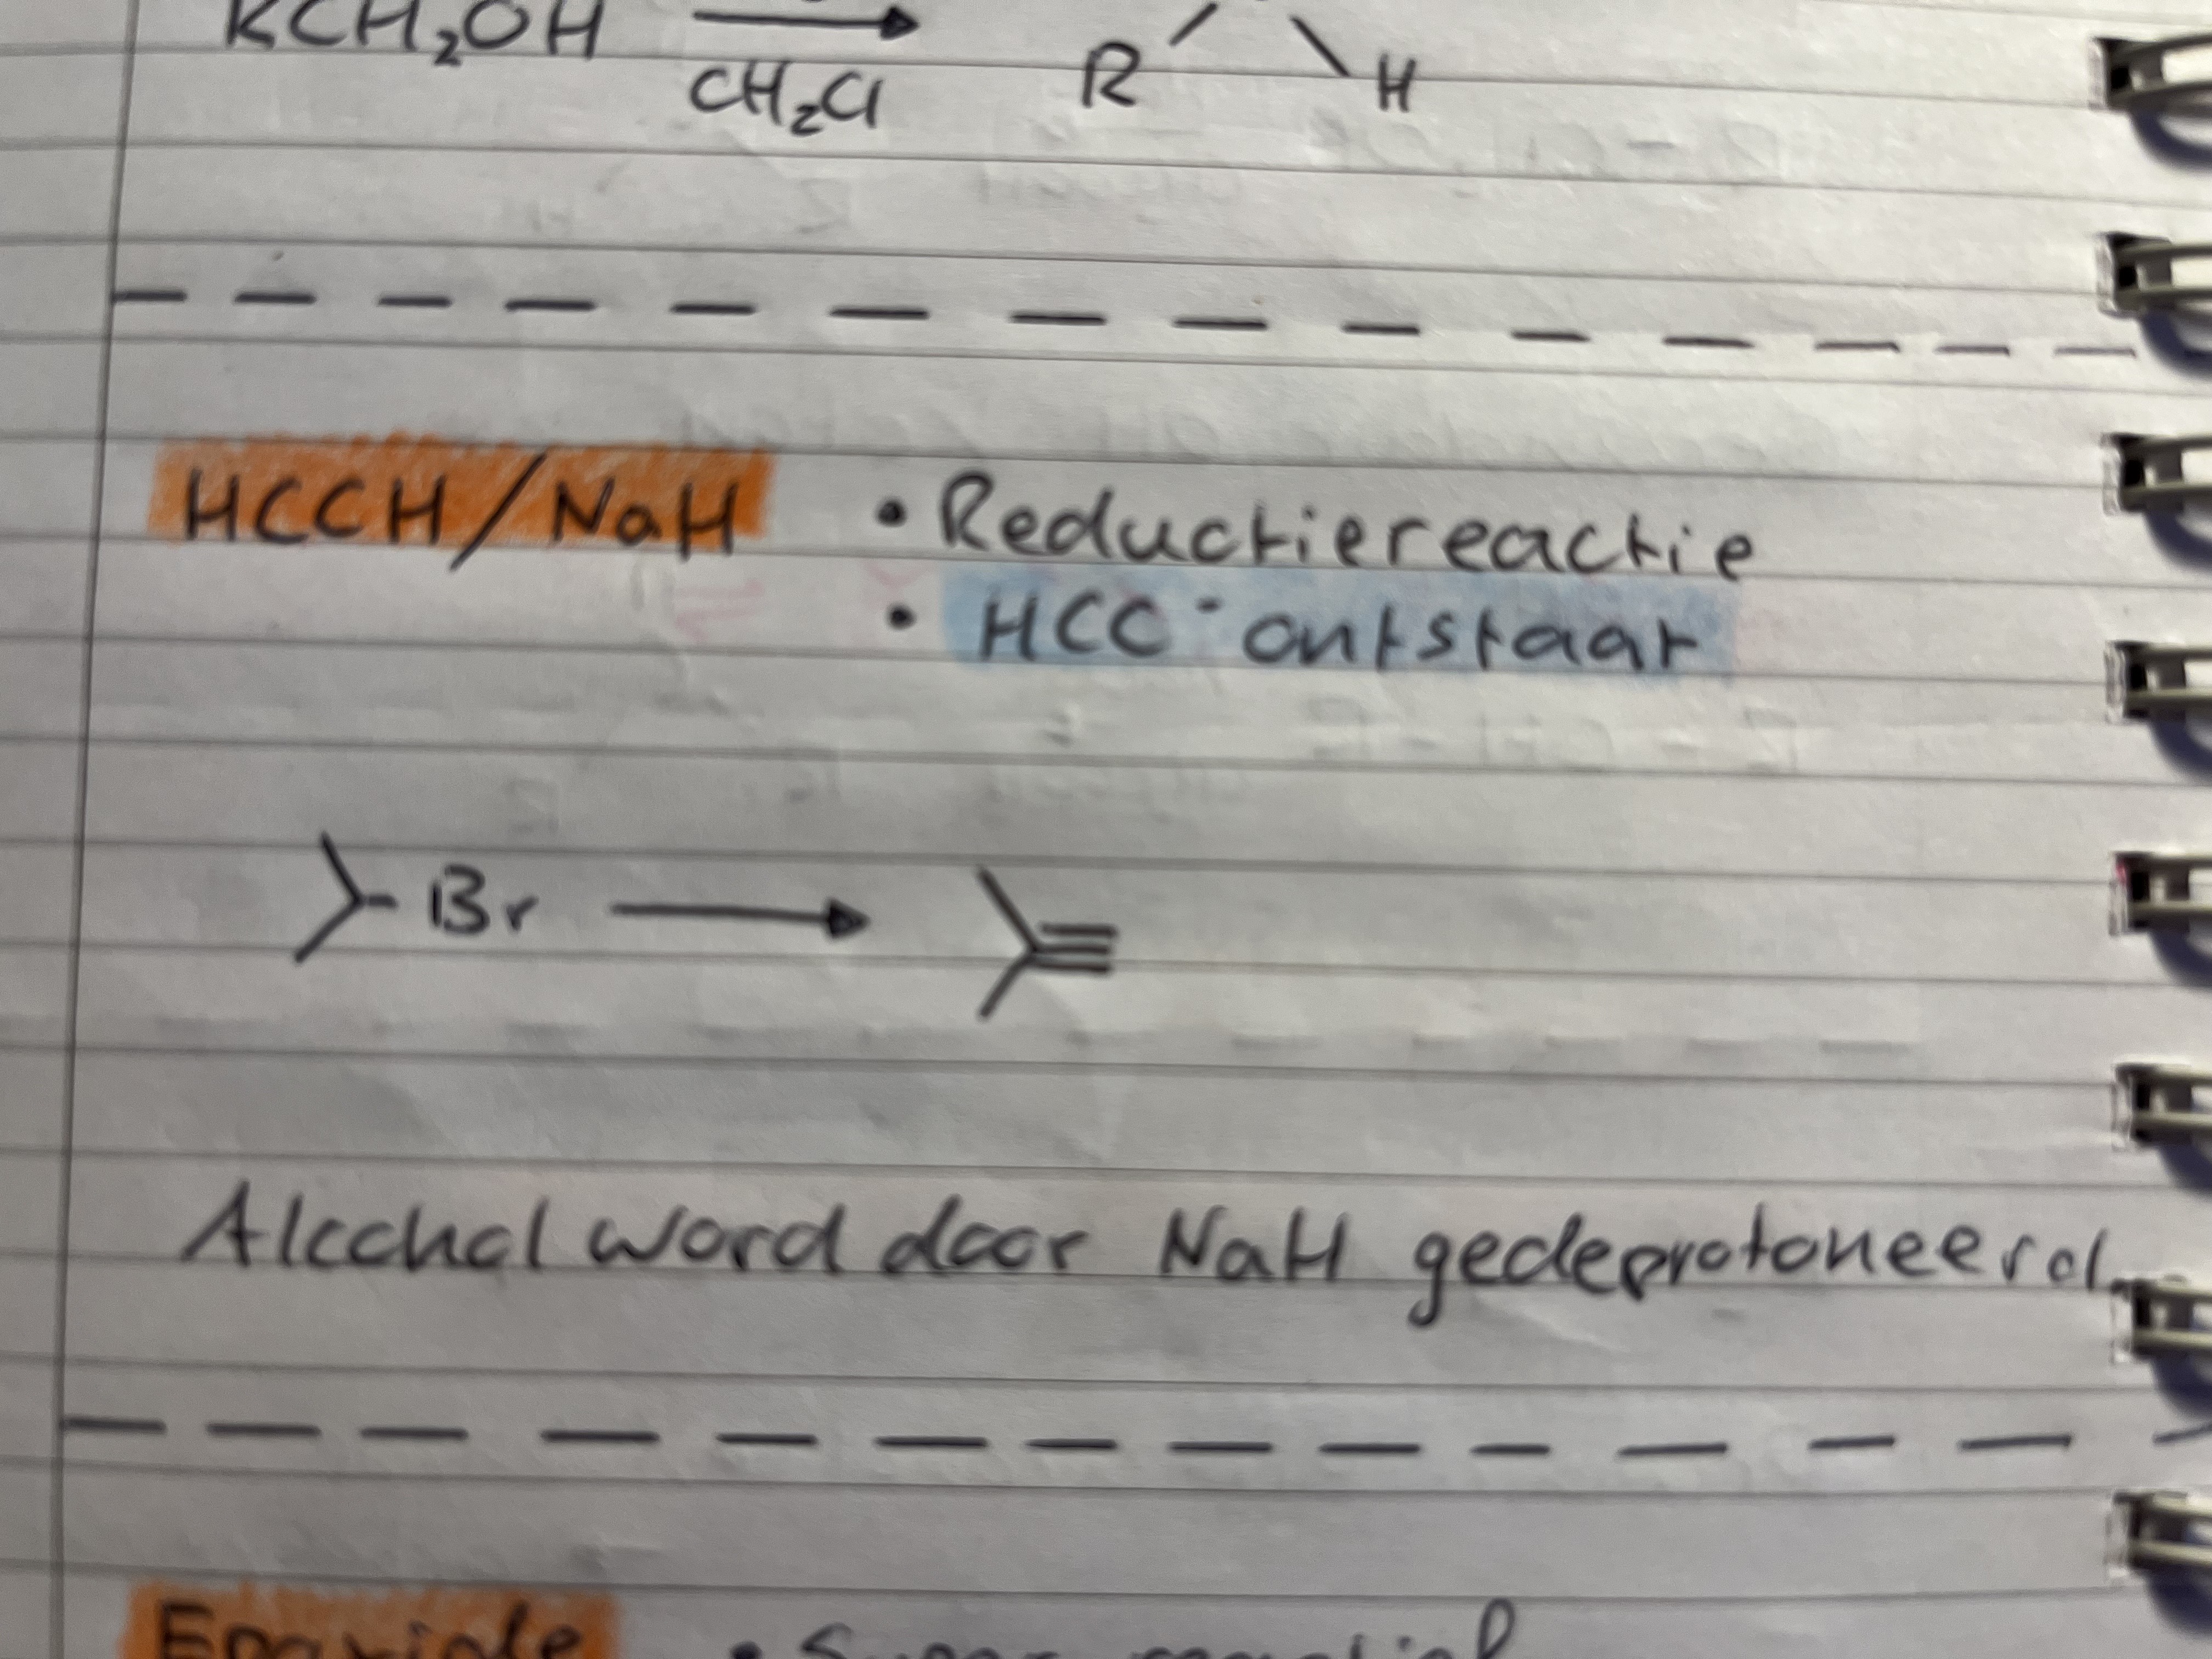 RCH₂OH
CH₂Cl R H
HCCH/NaH • Reductiereactie
• HCC⁻ ontstaat
Br
Alcohol word door NaH gedeprotoneerd.
Epoxide • Super